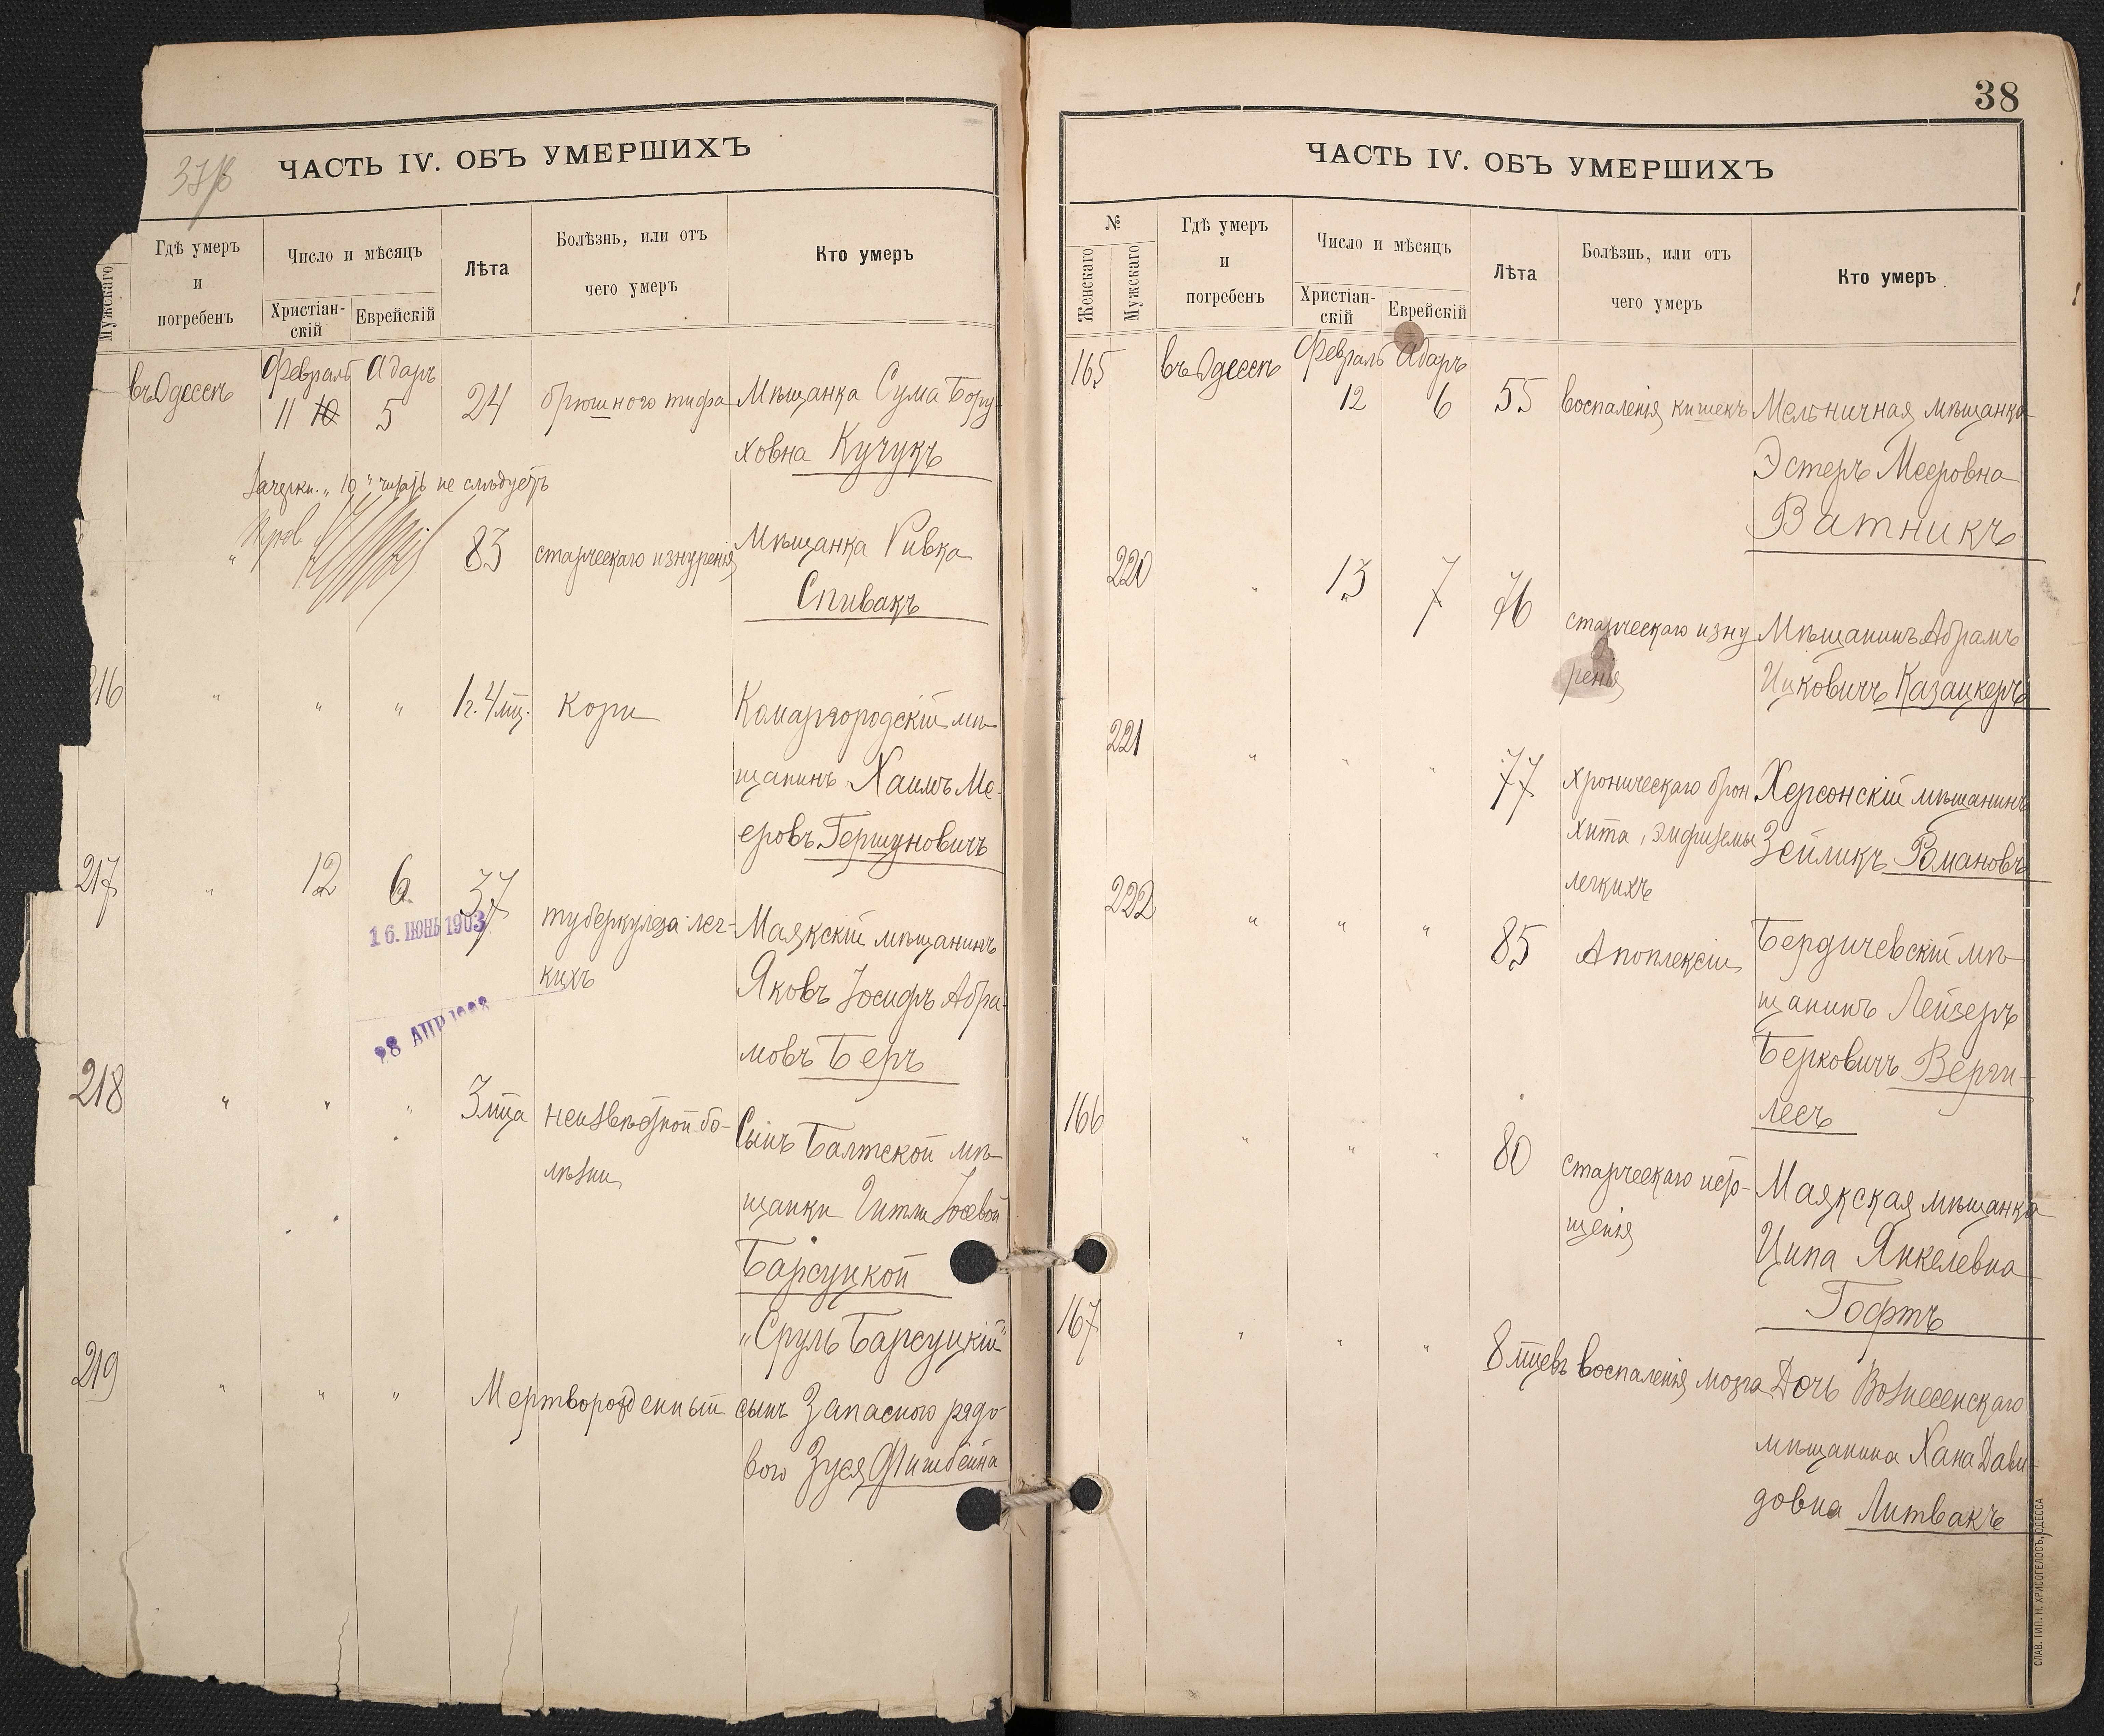 37/8
ЧАСТЬ IV. ОБЪ УМЕРШИХЪ
Мужскаго
Гдѣ умеръ
и
погребенъ
Число и мѣсяцъ
Христіан-
скій
Еврейскій
Лѣта
Болѣзнь, или отъ
чего умеръ
Кто умеръ
въ Одессѣ
Февраль Адаръ
11 10 5 24 брюшного тифа Мѣщанка Сума Бору-
ховна Кучукъ
Зачеркн. „10" читать не слѣдуетъ
" 83 старческаго изнуренія Мѣщанка Ривка
Спивакъ
216 " " " 1 г. 4 мц. кори Комаргородскій мѣ-
щанинъ Хаимъ Ме-
еровъ Гершуновичъ
217 " 12 6 37 туберкулеза лег-
кихъ
Маякскій мѣщанинъ
Яковъ Іосифъ Абра-
мовъ Беръ
16. ІЮНЬ 1903
28 АПР 1908
218 " " " 3 мца неизвѣстной бо-
лѣзни
Сынъ Балтской мѣ-
щанки Гитли Іосевой
Барсуцкой
„Сруль Барсуцкій"
219 " " " Мертворожденный сынъ Запасного рядо-
вого Зуся Фишбейна
38
ЧАСТЬ IV. ОБЪ УМЕРШИХЪ
№
Женскаго
Мужскаго
Гдѣ умеръ
и
погребенъ
Число и мѣсяцъ
Христіан-
скій
Еврейскій
Лѣта
Болѣзнь, или отъ
чего умеръ
Кто умеръ
165 въ Одессѣ Февраль Адаръ
12 6 55 воспаленія кишекъ Мельничная мѣщанка
Эстеръ Мееровна
Ватникъ
220 " 13 7 76 старческаго изну
ренія
Мѣщанинъ Абрамъ
Ицковичъ Казацкеръ
221 " " " 77 хроническаго брон
хита, эмфиземы
легкихъ
Херсонскій мѣщанинъ
Зейликъ Романовъ
222 " " " 85 Апоплексіи Бердичевскій мѣ-
щанинъ Лейзеръ
Берковичъ Верги-
лесъ
166 " " " 80 старческаго исто-
щенія
Маякская мѣщанка
Ципа Янкелевна
Гофтъ
167 " " " 8 мцевъ воспаленія мозга Дочь Вознесенскаго
мѣщанина Хана Дави-
довна Литвакъ
СЛАВ. ТИП. Н. ХРИСОГЕЛОСЪ, ОДЕССА